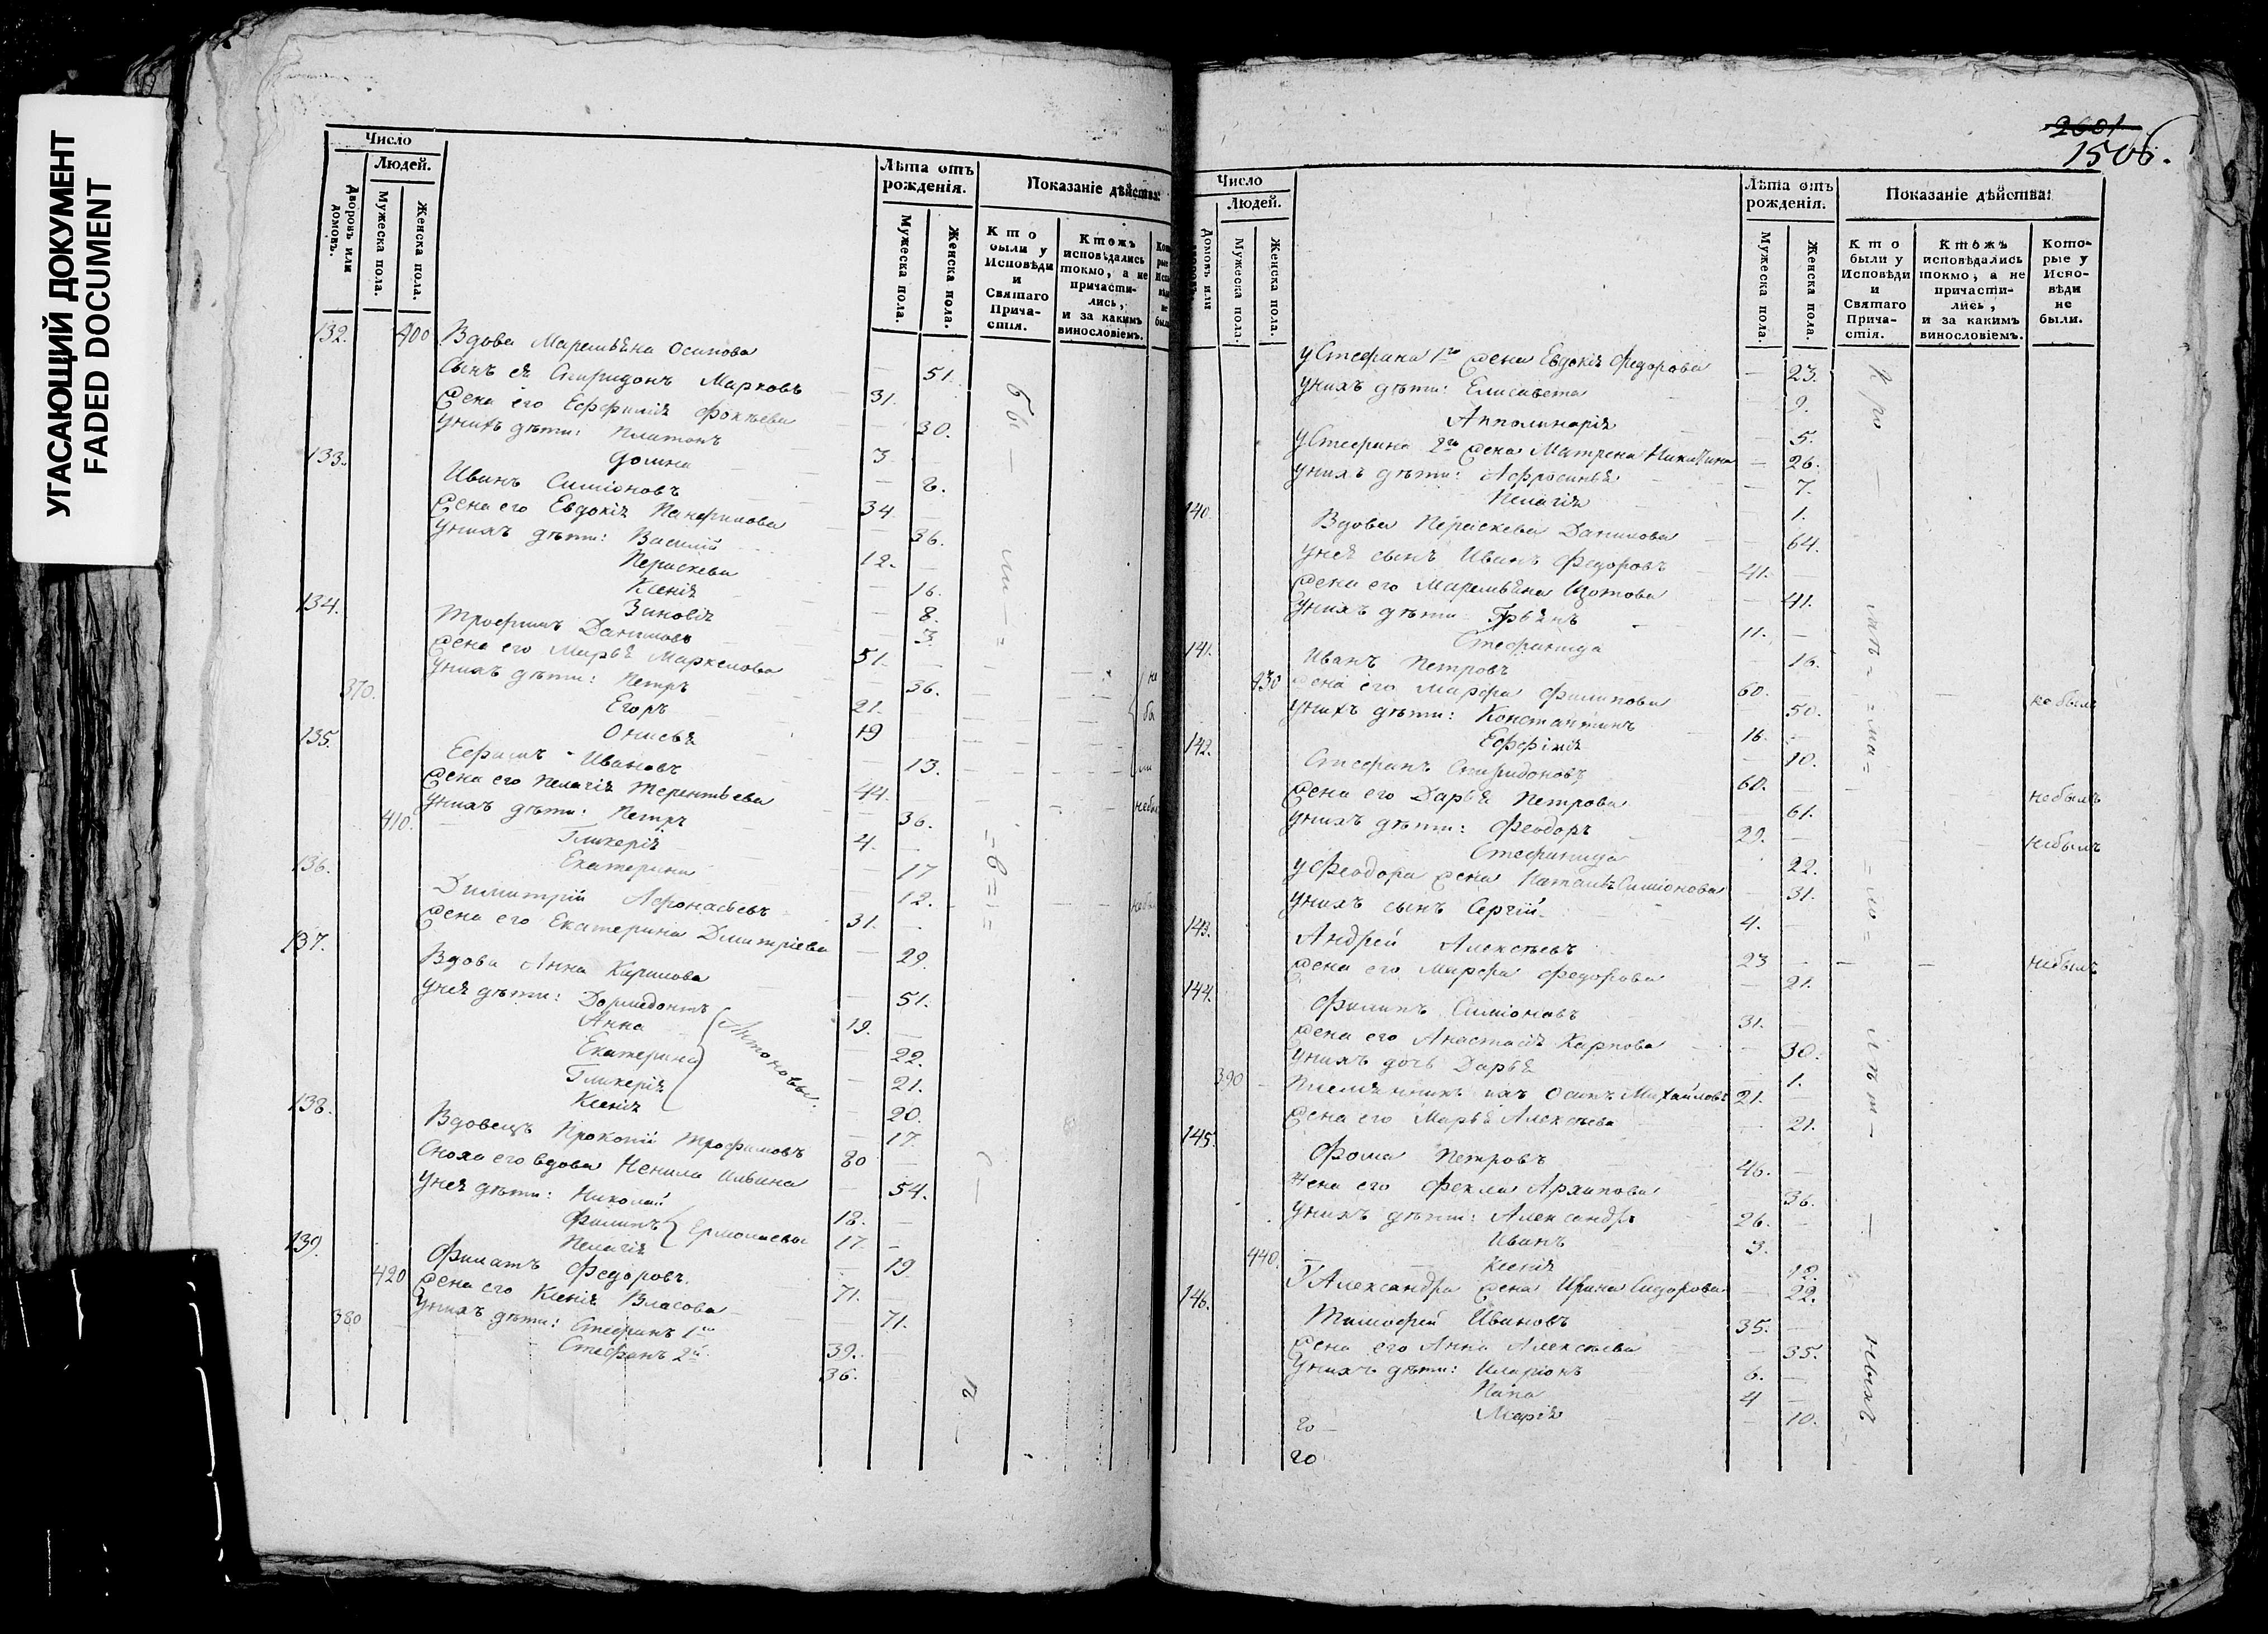 УГАСАЮЩИЙ ДОКУМЕНТ
FADED DOCUMENT
Число
Людей.
Дворовъ или домовъ.
Мужеска пола.
Женска пола.
Лѣта отъ рожденія.
Мужеска пола.
Женска пола.
Показаніе дѣйства:
Кто были у Исповѣди и Святаго Причастія.
Ктожъ исповѣдались токмо, а не причастились, и за какимъ винословіемъ.
132. 400 Вдова Маремьяна Осипова — 51.
Сынъ ея Спиридонъ Марковъ 31.
Жена его Еффимія Фокѣева 30.
Унихъ дѣти: Платонъ 3
Домна — 2.
133. Иванъ Симіоновъ 34
Жена его Евдокія Панфилова — 36.
Унихъ дѣти: Василій 12.
Параскева — 16.
Ксенія — 8.
Зиновія 3.
134. Трофимъ Даниловъ 51.
Жена его Марья Маркелова — 36.
370. Унихъ дѣти: Петръ 21.
Егоръ 19
Онисья 13.
135. Ефимъ Ивановъ 44.
Жена его Пелагія Терентьева — 36.
410. Унихъ дѣти: Петръ 4.
Гликерія — 17
Екатерина 12.
136. Димитрій Афонасьевъ 31.
Жена его Екатерина Дмитріева — 29.
137. Вдова Анна Кирилова — 51.
Унея дѣти: Дормидонтъ 19.
Анна — 22.
Екатерина — 21.
Гликерія 20.
Ксенія — 17.
Антоновы.
138. Вдовецъ Прокопій Трофимовъ 80
Сноха его вдова Ненила Ильина — 54.
Унея дѣти: Николай 18.
Филипъ 17.
Пелагія — 19
Ермолаевы
139. Филатъ Федоровъ. 71.
420 Жена его Ксенія Власова 71.
380 Унихъ дѣти: Стефанъ 1й 39.
Стефанъ 2й 36.
2601
1506.
Число
Людей.
Домовъ или
Мужеска пола.
Женска пола.
Лѣта отъ рожденія.
Мужеска пола.
Женска пола.
Показаніе дѣйства:
Кто были у Исповѣди и Святаго Причастія.
Ктожъ исповѣдались токмо, а не причастились, и за какимъ винословіемъ.
Которые у Исповѣди не были.
у Стефана 1го жена Евдокія Федорова — 23.
Унихъ дѣти: Елисавета — 9.
Апполинарія — 5.
у Стефана 2го жена Матрена Никитина — 26.
Унихъ дѣти: Афросинья — 7.
Пелагія 1.
140. Вдова Параскева Данилова — 64.
Унея сынъ Иванъ Федоровъ 41.
Жена его Маремьяна Изотова — 41.
Унихъ дѣти 11. —
Стефанида 16.
141. Иванъ Петровъ 60. — небылъ
430 Жена его Марфа Филипова 50.
Унихъ дѣти: Константинъ 16. —
Еффимія — 10.
142. Стефанъ Спиридоновъ 60. небылъ
Жена его Дарья Петрова 61.
Унихъ дѣти: Феодоръ 29. небылъ
Стефанида 22.
у Феодора жена Наталья Симіонова — 31.
Унихъ сынъ Сергій 4.
143. Андрей Алексѣевъ 23 — — небылъ
Жена его Марфа Федорова — 21.
144. Филипъ Симіоновъ 31. —
Жена его Анастасія Карпова — 30.
Унихъ дочь Дарья 1.
390 Племянникъ ихъ Осипъ Михайловъ 21. —
Жена его Марья Алексѣева — 21.
145. Фома Петровъ 46. —
Жена его Фекла Архипова 36.
Унихъ дѣти: Александръ 26. —
Иванъ 3.
440. Ксенія 12.
У Александра жена Ирина Сидорова — 22.
146. Тимофей Ивановъ 35. —
Жена его Анна Алексѣева — 35.
Унихъ дѣти: Иларіонъ 6. —
Папа 4 —
Марія — 10.